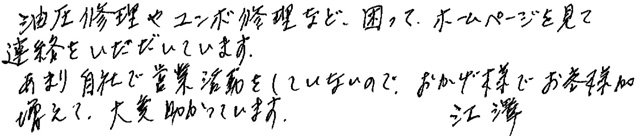 油圧修理やユンボ修理など、困って、ホームページを見て
連絡をいただいています。
あまり自社で営業活動をしていないので、おかげ様でお客様が
増えて、大変助かっています。 江澤